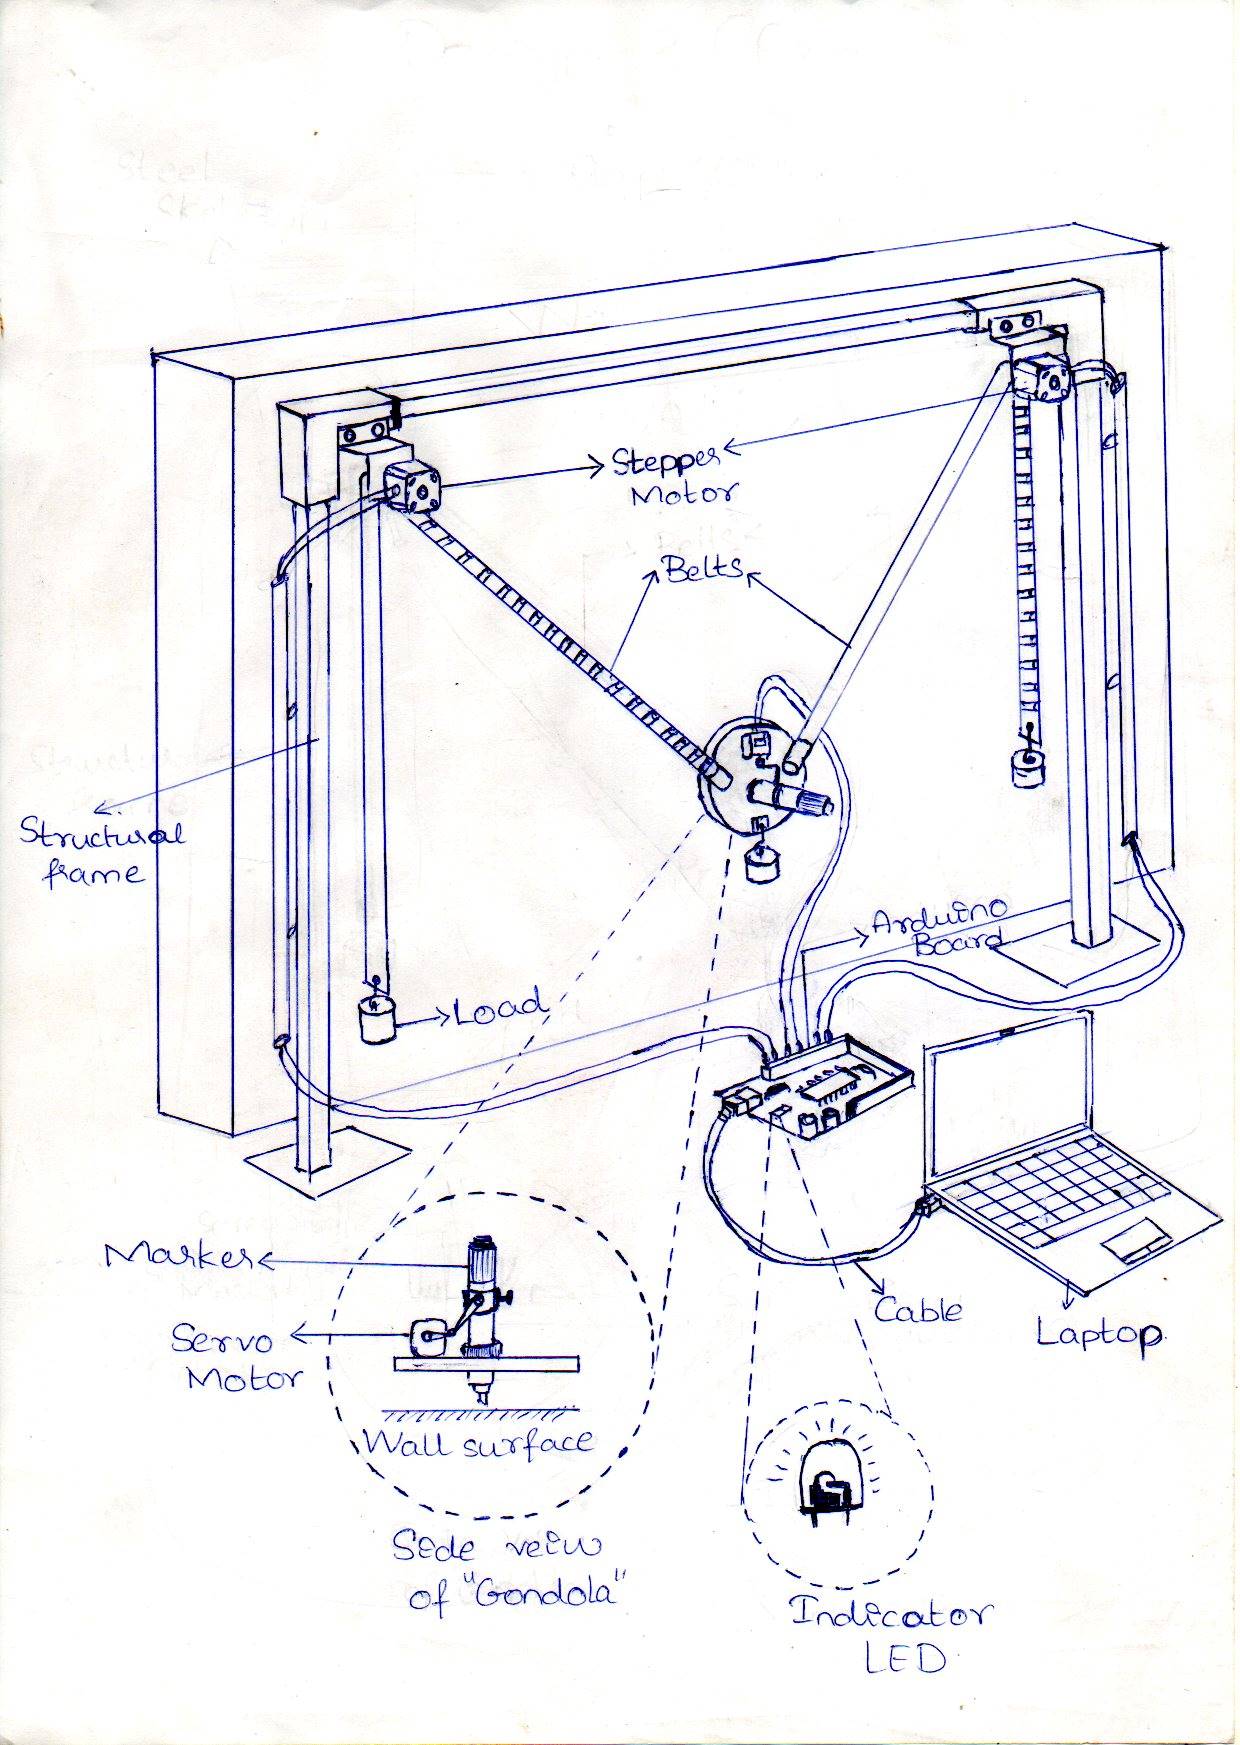 Stepper
Motor
Belts
Structural
frame
Arduino
Board
Load
Marker
Servo
Motor
Cable
Laptop
Wall surface
Side veiw
of "Gondola"
Indicator
LED